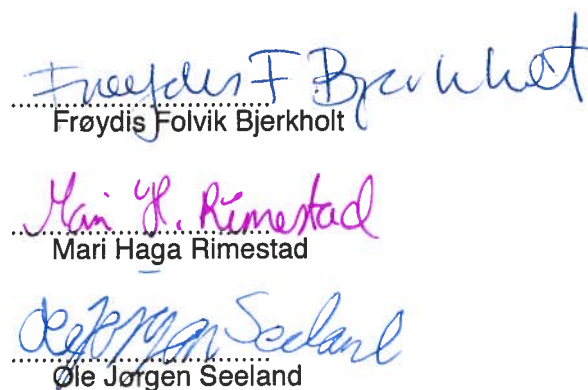 Frøydis F Bjerkholt
....................................
Frøydis Folvik Bjerkholt
Mari H. Rimestad
....................................
Mari Haga Rimestad
Ole Jørgen Seeland
....................................
Øle Jørgen Seeland